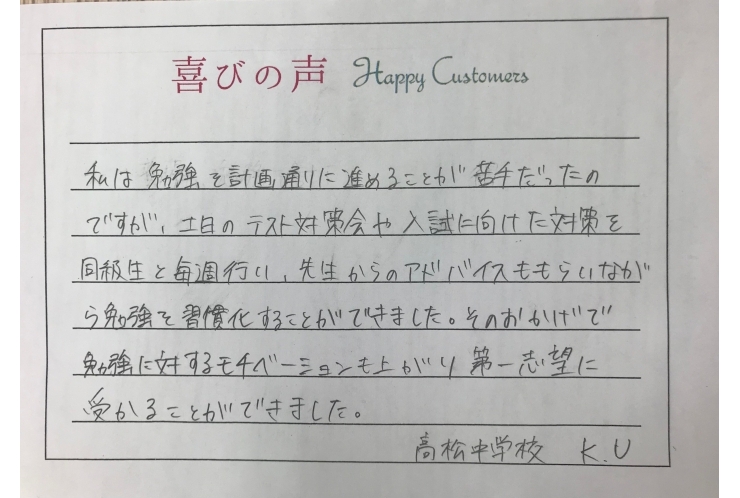 喜びの声 Happy Customers
私は勉強を計画通りに進めることが苦手だったの
ですが、土日のテスト対策会や入試に向けた対策を
同級生と毎週行い、先生からのアドバイスももらいなが
ら勉強を習慣化することができました。そのおかげで
勉強に対するモチベーションも上がり第一志望に
受かることができました。
高松中学校 K.U